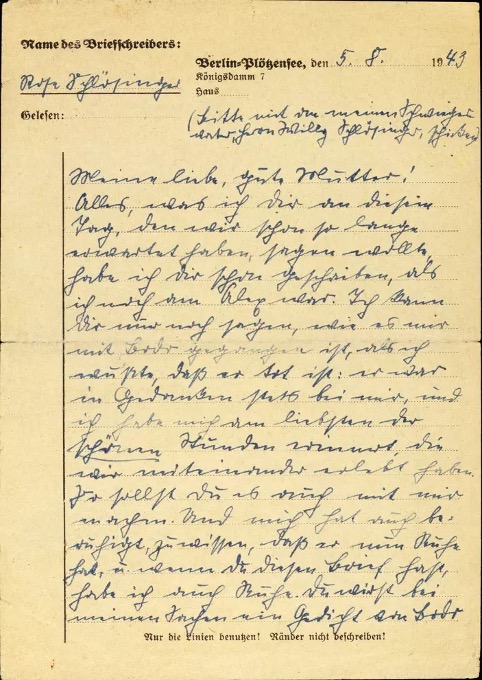 Name des Briefschreibers:
Rose Schlösinger
Berlin-Plötzensee, den 5. 8. 1943
Königsdamm 7
Haus
Gelesen:
(bitte mit an meinen Schwieger-
vater, Herrn Willy Schlösinger, schicken)
Meine liebe, gute Mutter!
Alles, was ich Dir an diesem
Tag, den wir schon so lange
erwartet haben, sagen wollte,
habe ich Dir schon geschrieben, als
ich noch am Alex war. Ich kann
Dir nur noch sagen, wie es mir
mit Bodo gegangen ist, als ich
wußte, daß er tot ist: er war
in Gedanken stets bei mir, und
ich habe mich am liebsten der
schönen Stunden erinnert, die
wir miteinander erlebt haben.
So sollst Du es auch mit mir
machen. Und mich hat auch be-
ruhigt, zu wissen, daß er nun Ruhe
hat, u. wenn Du diesen Brief hast,
habe ich auch Ruhe. Du wirst bei
meinen Sachen ein Gedicht von Bodo
Nur die Linien benutzen! Ränder nicht beschreiben!